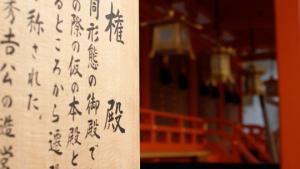 権殿
同形態の御殿で
の際の仮の本殿と
るところから遷
称された。
秀吉公の造営